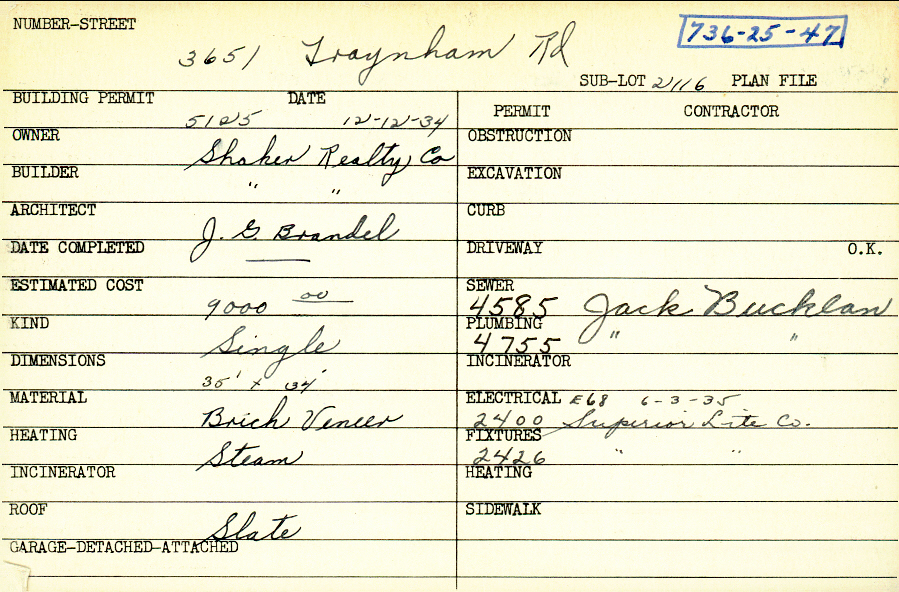 NUMBER-STREET
3651 Traynham Rd
736-25-47
SUB-LOT 2116 PLAN FILE
BUILDING PERMIT DATE
5125 12-12-34
PERMIT CONTRACTOR
OWNER
Shaker Realty Co
OBSTRUCTION
BUILDER
" "
EXCAVATION
ARCHITECT
J. G. Brandel
CURB
DATE COMPLETED
DRIVEWAY O.K.
ESTIMATED COST
9000 00
SEWER
4585 Jack Bucklan
KIND
Single
PLUMBING
4755 " "
DIMENSIONS
INCINERATOR
MATERIAL
Brick Veneer
ELECTRICAL E68 6-3-35
2400 Superior Lite Co.
HEATING
Steam
FIXTURES
2426 " "
INCINERATOR
HEATING
ROOF
Slate
SIDEWALK
GARAGE-DETACHED-ATTACHED